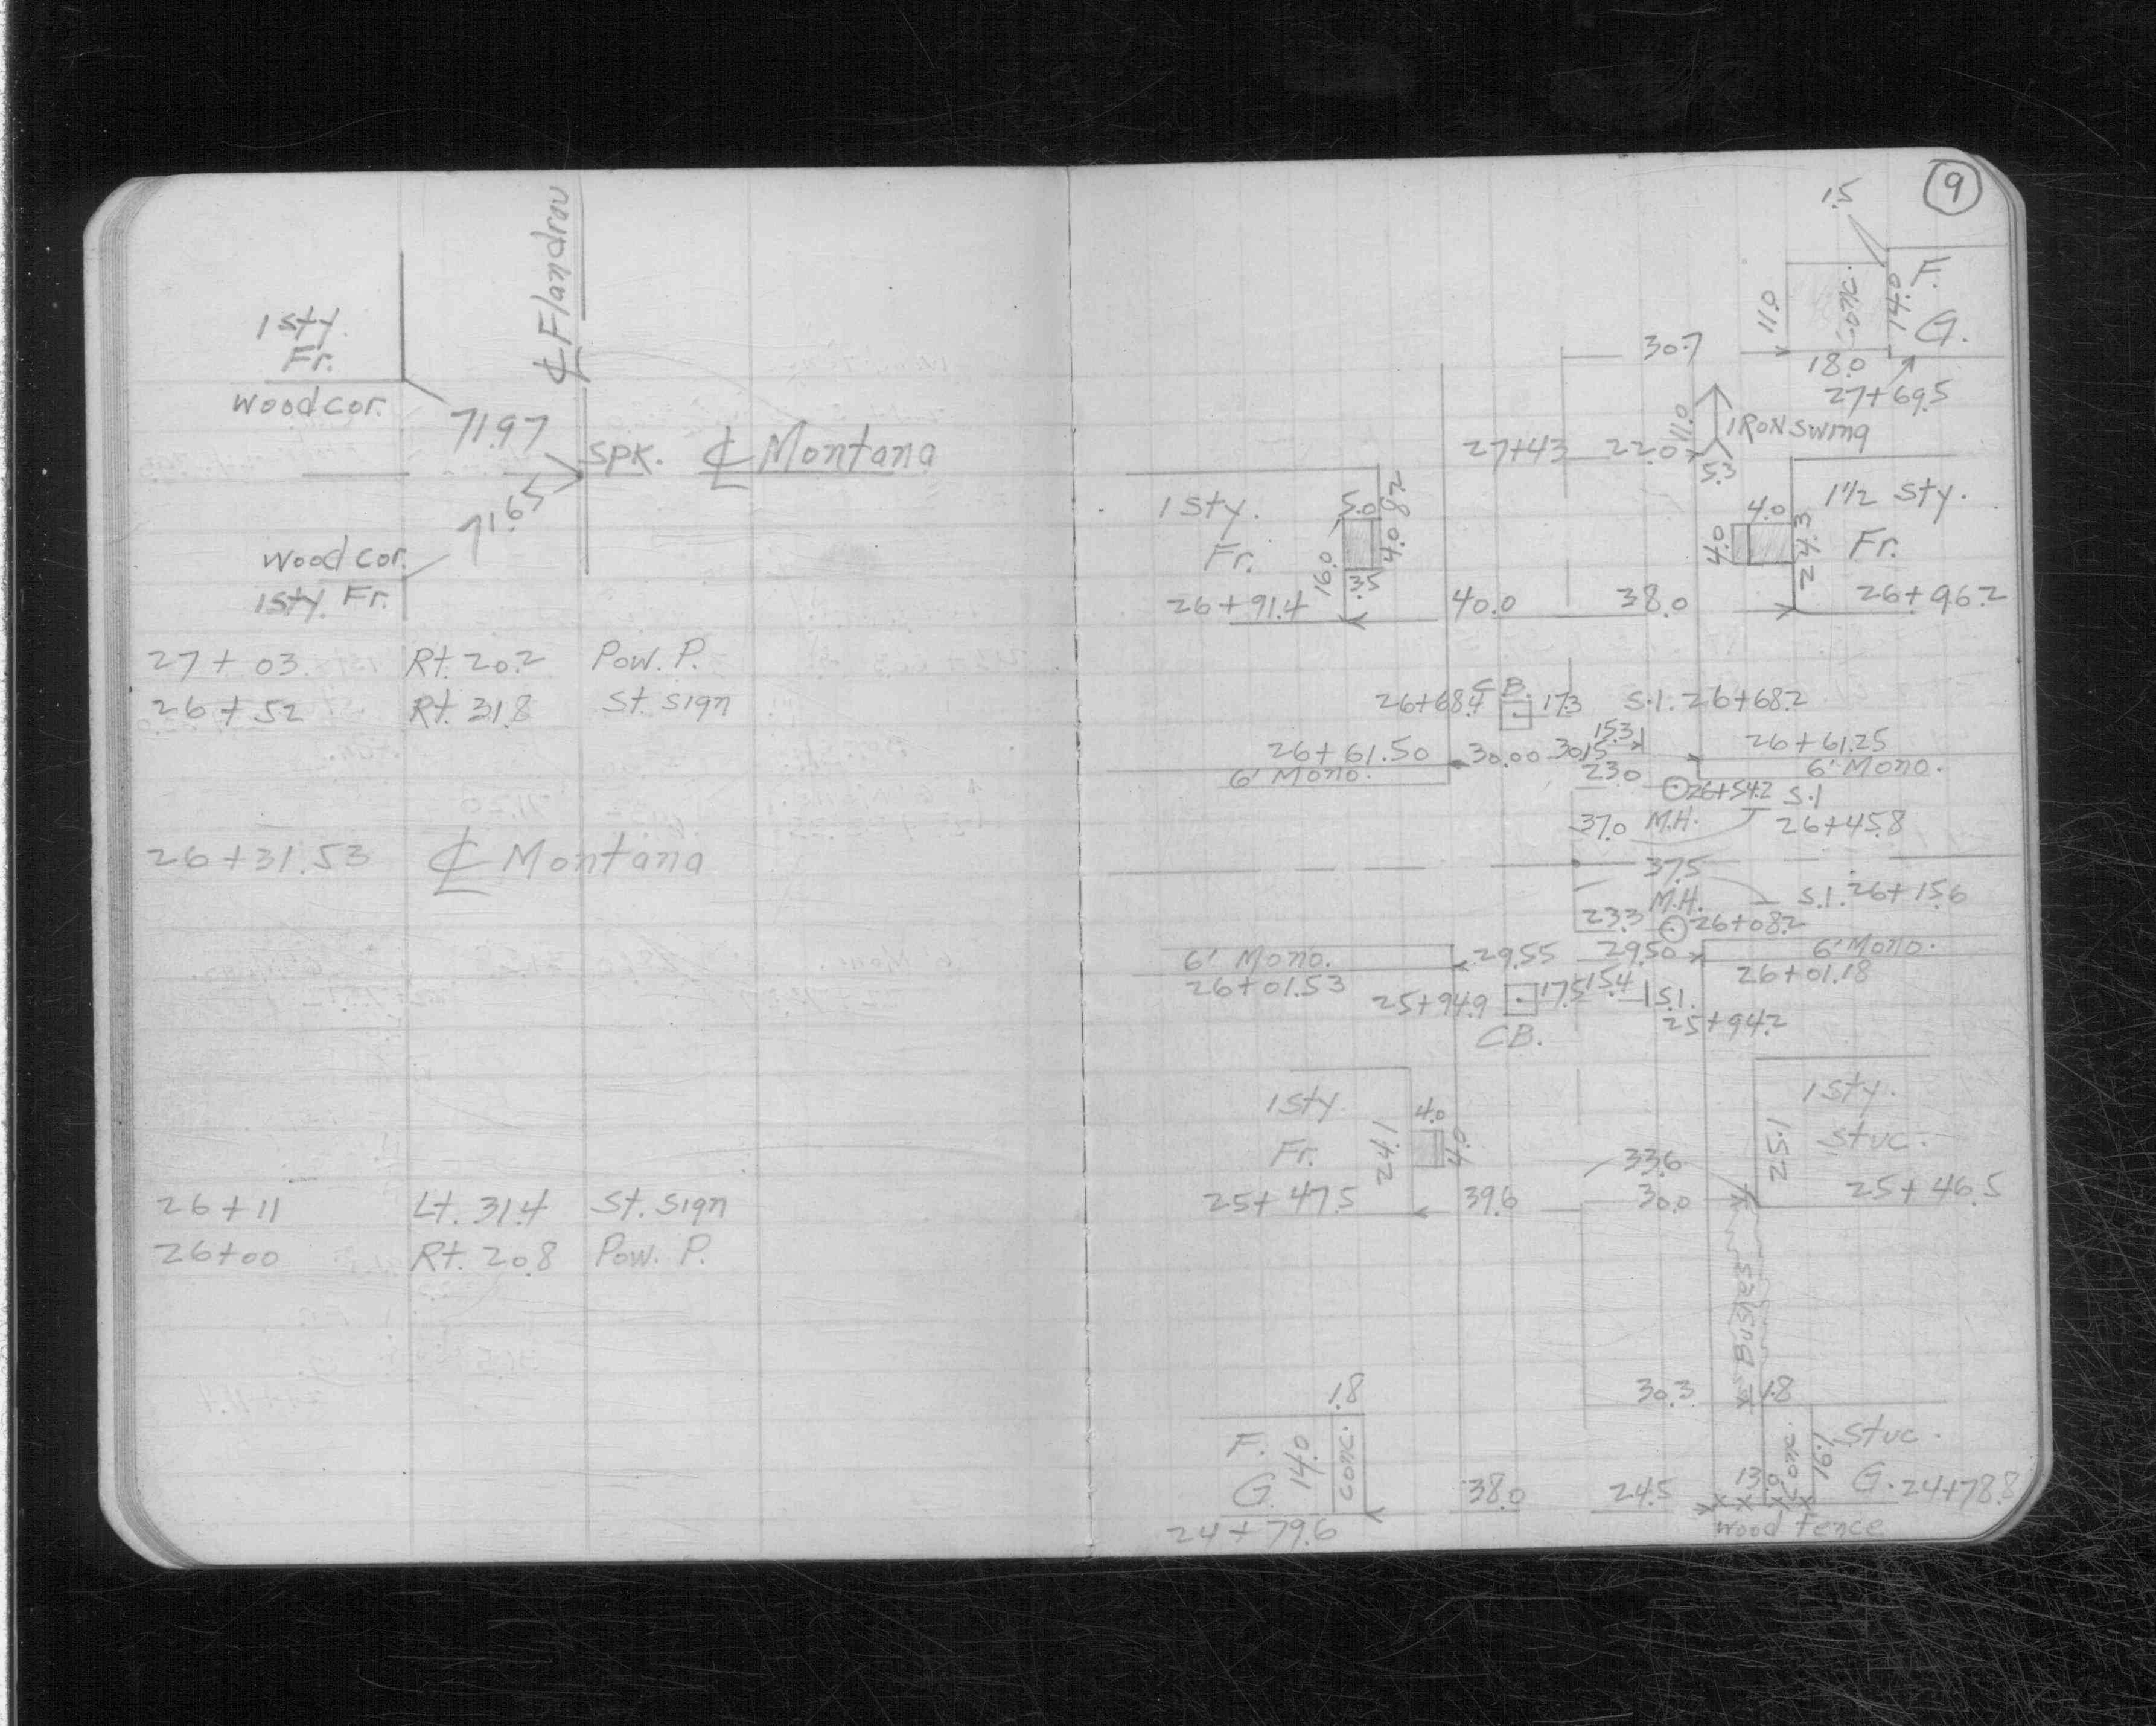 ℄ Flandrau
1 sty.
Fr.
Wood cor.
71.97
SPK. ℄ Montana
71.65
Wood cor.
1 sty. Fr.
27 + 03 Rt. 20.2 Pow. P.
26 + 52 Rt. 31.8 St. Sign
26 + 31.53 ℄ Montana
26 + 11 Lt. 31.4 St. Sign
26 + 00 Rt. 20.8 Pow. P.
9
1.5
11.0 Conc. 14.0 F.
G.
30.7
18.0
27+69.5
11.0 IRON Swing
27+43 22.0
5.3
1 sty. 5.0 8.2 4.0 1 1/2 sty.
Fr. 16.0 4.0 4.0 24.3 Fr.
3.5
26 + 91.4 40.0 38.0 26 + 96.2
C.B.
26+68.4 17.3 S.I. 26+68.2
15.3
26 + 61.50 30.00 30.15 26 + 61.25
6' Mono. 23.0 6' Mono.
26+54.2 S.I
37.0 M.H. 26+45.8
37.5
M.H. S.I. 26+15.6
23.3 26+08.2
6' Mono. 29.55 29.50 6' Mono.
26+01.53 26+01.18
25+94.9 17.5 15.4 S.I.
25+94.2
C.B.
1 sty. 4.0 1 sty.
Fr. 24.1 4.0 25.1 Stuc.
33.6
25 + 47.5 39.6 30.0 25 + 46.5
Bushes
1.8 30.3 1.8
F. 14.0 Conc. Conc. 16.1 Stuc.
G. 38.0 24.5 13.0 G. 24+78.8
24 + 79.6 Wood Fence